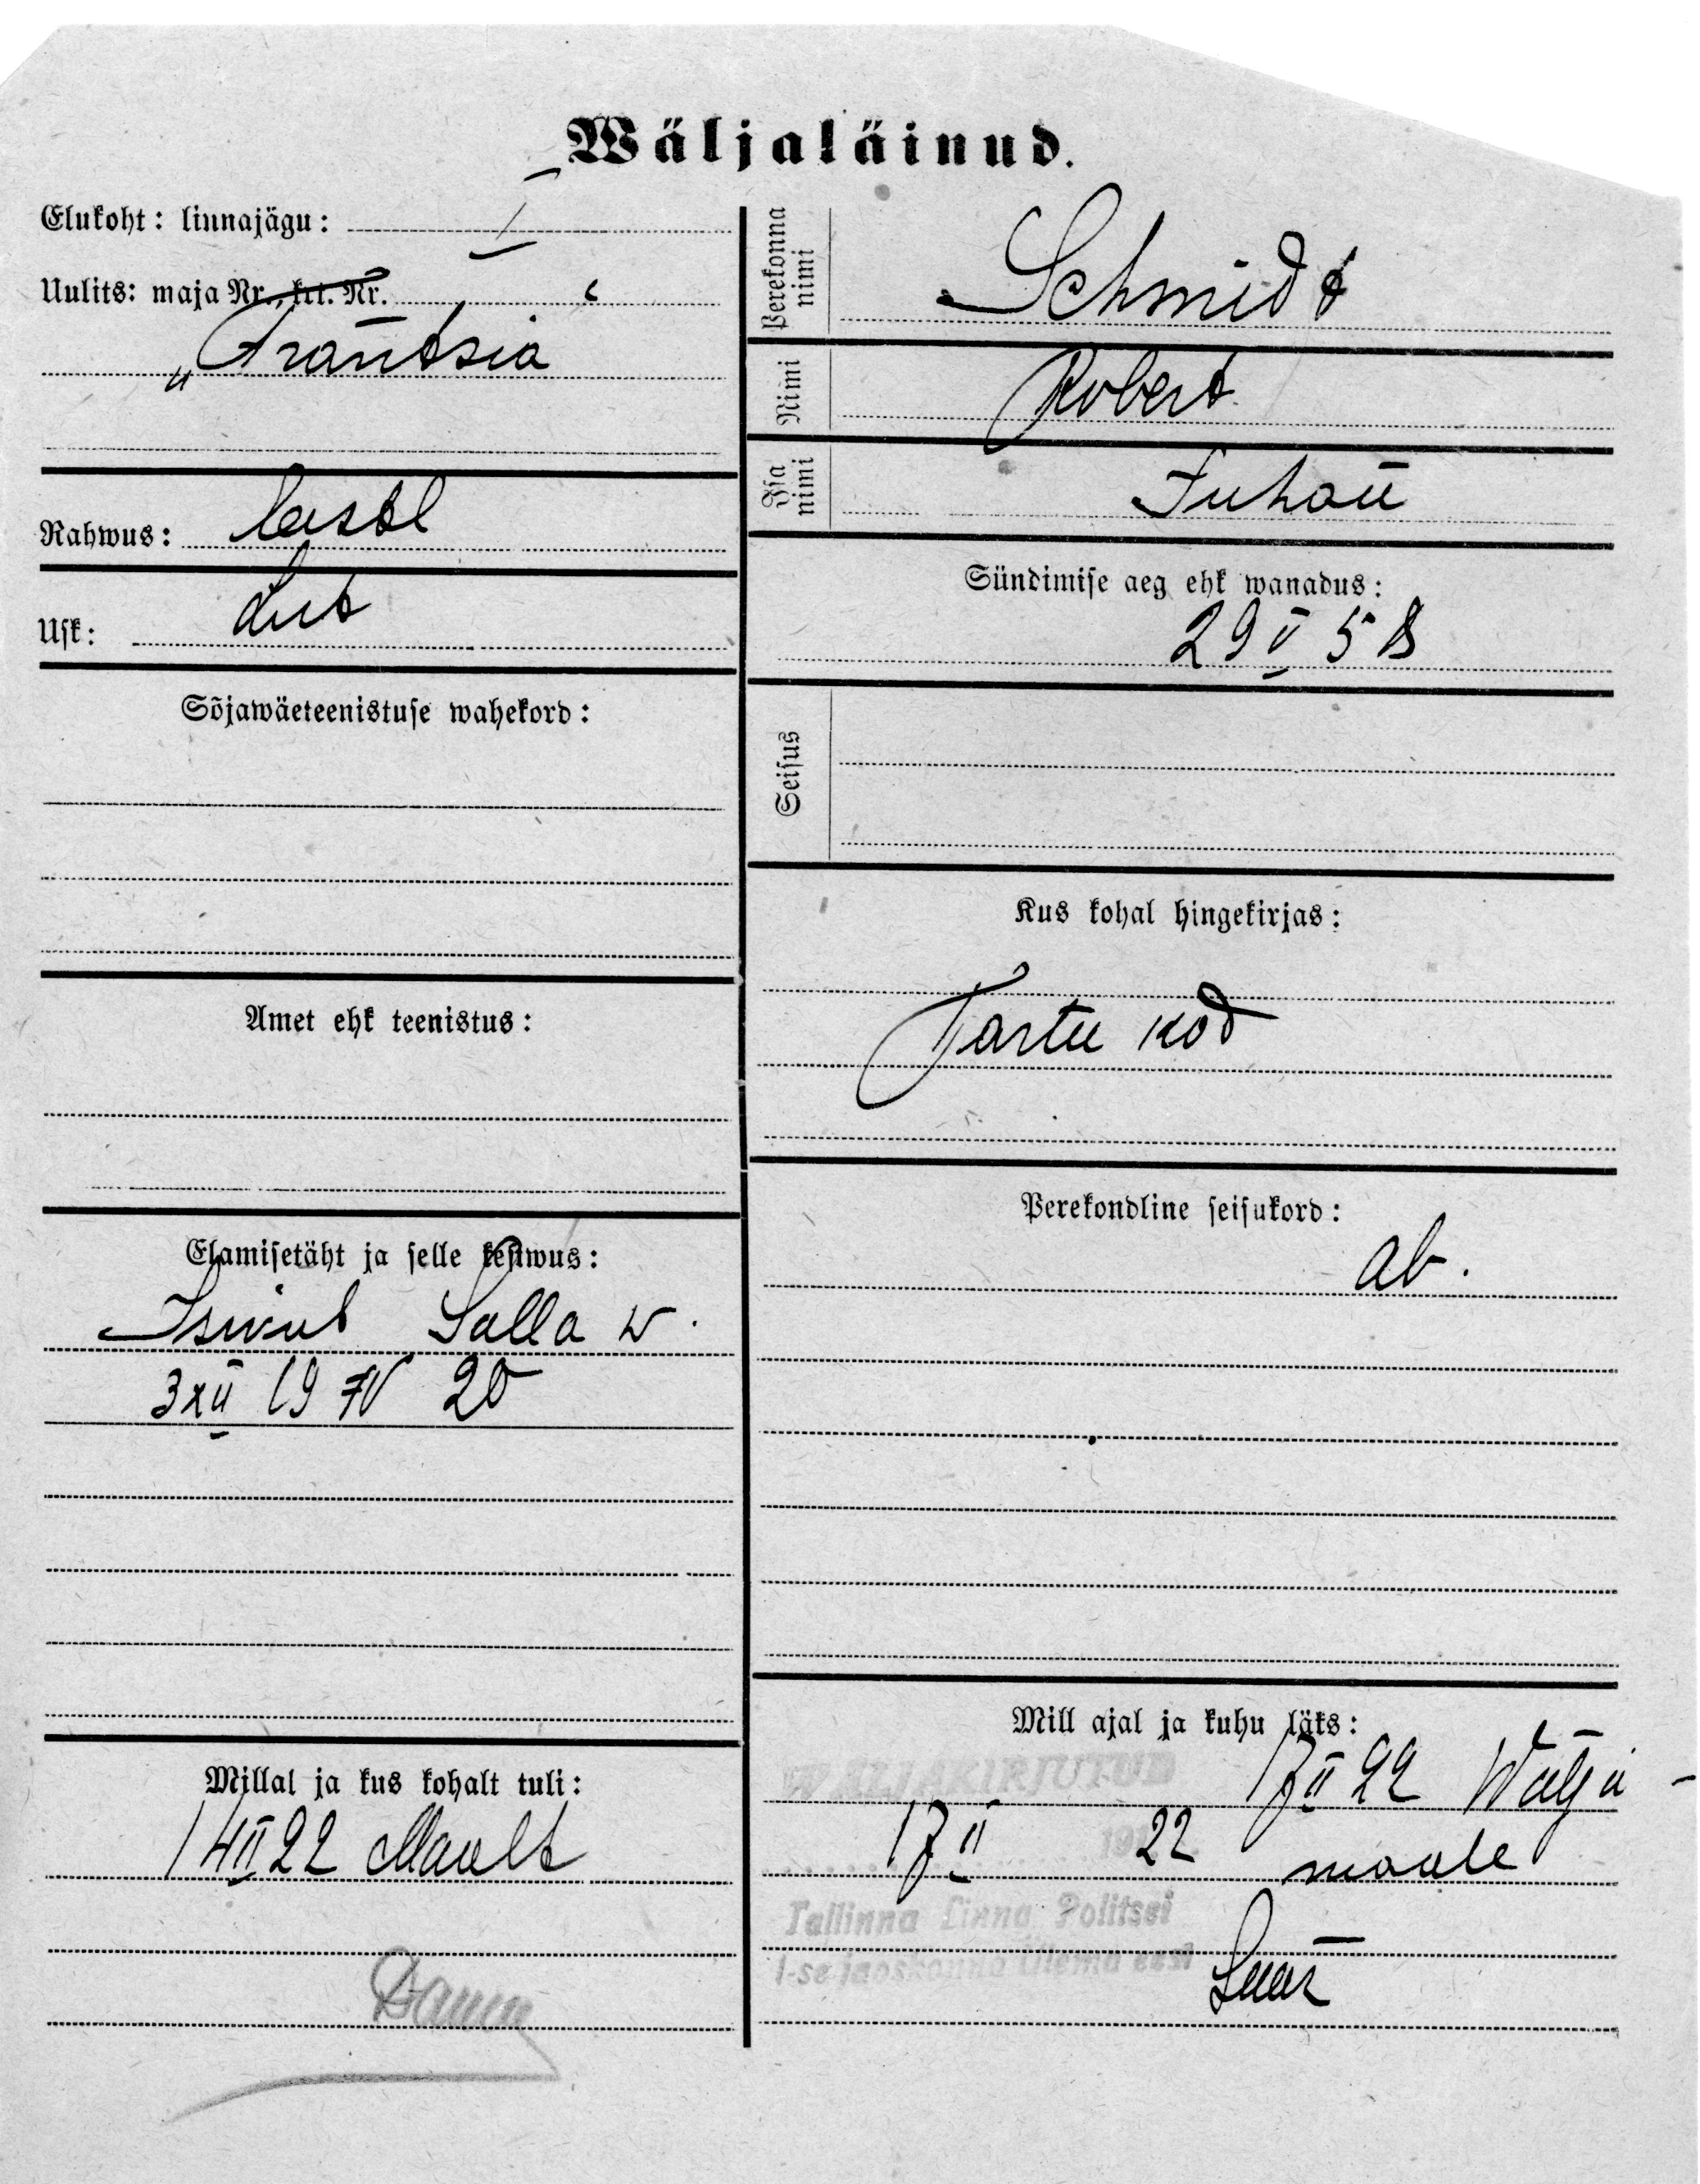 Wäljaläinud.
Elukoht: linnajagu: I
Uulits: maja Nr., krt. Nr.
„Prantsia
Rahwus: eestl
Usk: Lut
Sõjawäeteenistuse wahekord:
Amet ehk teenistus:
Elamisetäht ja selle kestwus:
Isikut Salla w.
3 XII 19 20
Millal ja kus kohalt tuli:
14 II 22 Maalt
Perekonna nimi
Schmidt
Nimi
Robert
Isa nimi
Juhan
Sündimise aeg ehk wanadus:
29 V 58
Seisus
Kus kohal hingekirjas:
Tartu kod
Perekondline seisukord:
ab.
Mill ajal ja kuhu läks:
WÄLJAKIRJUTUD
17 II 22 Walja-
17 II 1922 maale
Tallinna Linna Politsei
I-se jaoskonna Ülema eest